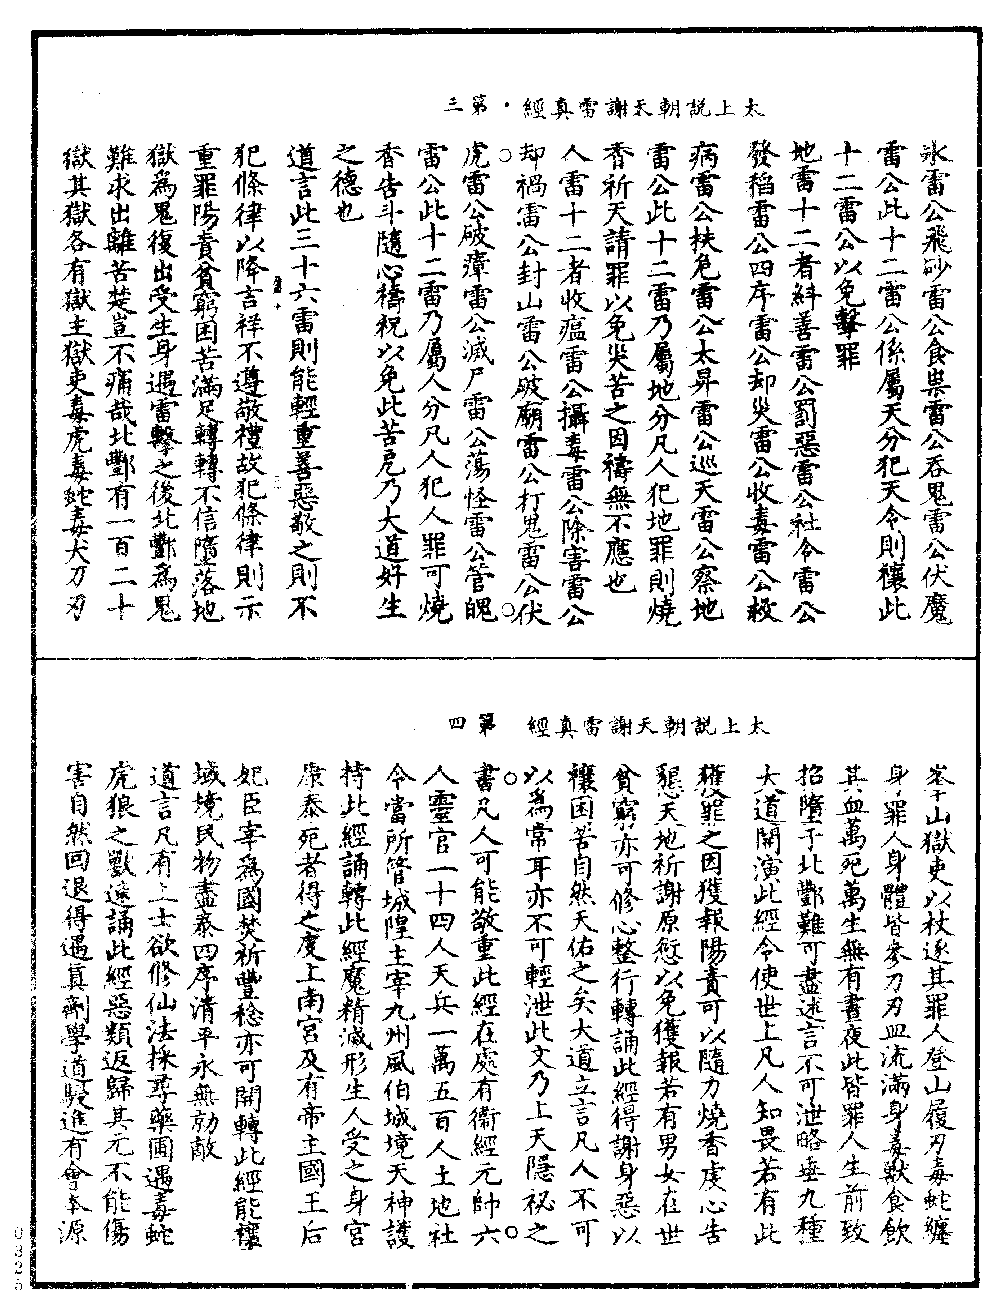 太上說朝天謝雷真經·第三
氷雷公飛砂雷公食祟雷公吞鬼雷公伏魔
雷公此十二雷公係屬天分犯天令則禳此
十二雷公以免擊罪
地雷十二者糾善雷公罰惡雷公社令雷公
發稻雷公四序雷公却災雷公收毒雷公殺
病雷公扶危雷公太昇雷公巡天雷公察地
雷公此十二雷乃屬地分凡人犯地罪則燒
香祈天請罪以免災苦之因禱無不應也
人雷十二者收瘟雷公攝毒雷公除害雷公
却禍雷公封山雷公破廟雷公打鬼雷公伏
虎雷公破瘴雷公滅尸雷公蕩怪雷公管魄
雷公此十二雷乃屬人分凡人犯人罪可燒
香告斗隨心禱祝以免此苦厄乃大道好生
之德也
道言此三十六雷則能輕重善惡敬之則不
犯條律以降吉祥不遵敬禮故犯條律則示
重罪陽責貧窮困苦滿足轉轉不信墮落地
獄爲鬼復出受生身遇雷擊之後北酆爲鬼
難求出離苦楚豈不痛哉北酆有一百二十
獄其獄各有獄主獄吏毒虎毒蛇毒犬刀刃
太上說朝天謝雷真經 第四
山獄吏以杖逐其罪人登山履刃毒蛇纏
身罪人身體皆參刀刃血流滿身毒獸食飲
其血萬死萬生無有晝夜此皆罪人生前致
招墮于北酆難可盡述言不可泄略垂九種
大道開演此經令使世上凡人知畏若有此
獲罪之因獲報陽責可以隨力燒香虔心告
懇天地祈謝原愆以免獲報若有男女在世
貧窮亦可修心整行轉誦此經得謝身惡以
禳困苦自然天佑之矣大道立言凡人不可
以爲常耳亦不可輕泄此文乃上天隱祕之
書凡人可能敬重此經在處有衞經元帥六
人靈官一十四人天兵一萬五百人土地社
令當所管城隍主宰九州風伯城境天神護
持此經誦轉此經魔精滅形生人受之身宮
康泰死者得之度上南宮及有帝主國王后
妃臣宰爲國焚祈豐稔亦可開轉此經能禳
域境民物盡泰四序清平永無勍敵
道言凡有上士欲修仙法採尋藥圃遇毒蛇
虎狼之獸遠誦此經惡類返歸其元不能傷
害自然回退得遇真劑學道驟進有會本源
0325